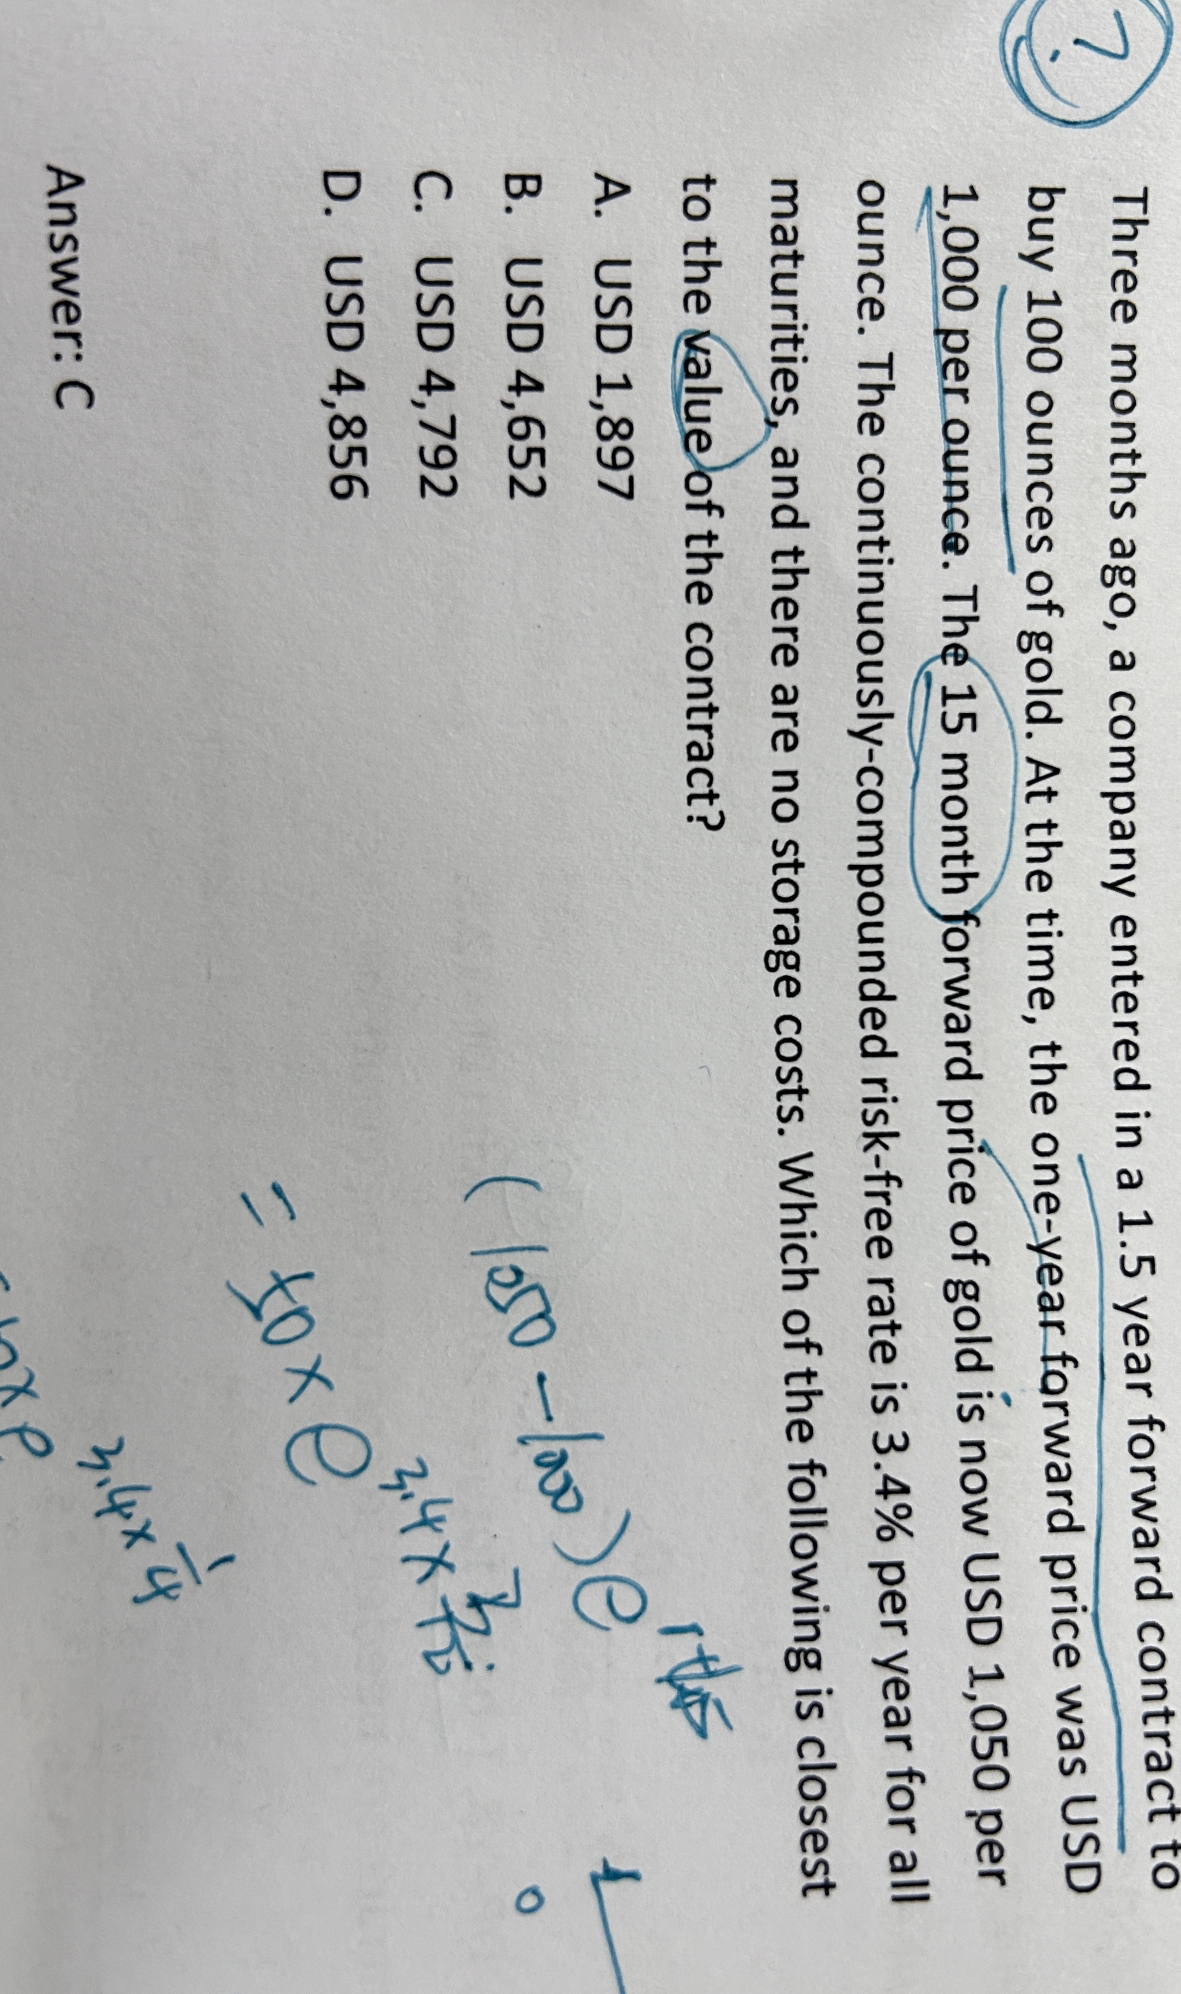 ?
Three months ago, a company entered in a 1.5 year forward contract to
buy 100 ounces of gold. At the time, the one-year forward price was USD
1,000 per ounce. The 15 month forward price of gold is now USD 1,050 per
ounce. The continuously-compounded risk-free rate is 3.4% per year for all
maturities, and there are no storage costs. Which of the following is closest
to the value of the contract?
A. USD 1,897
B. USD 4,652
C. USD 4,792
D. USD 4,856
(1050 - 1000) e
= 50 x e 3.4 x
x e 3.4 x 1/4
Answer: C